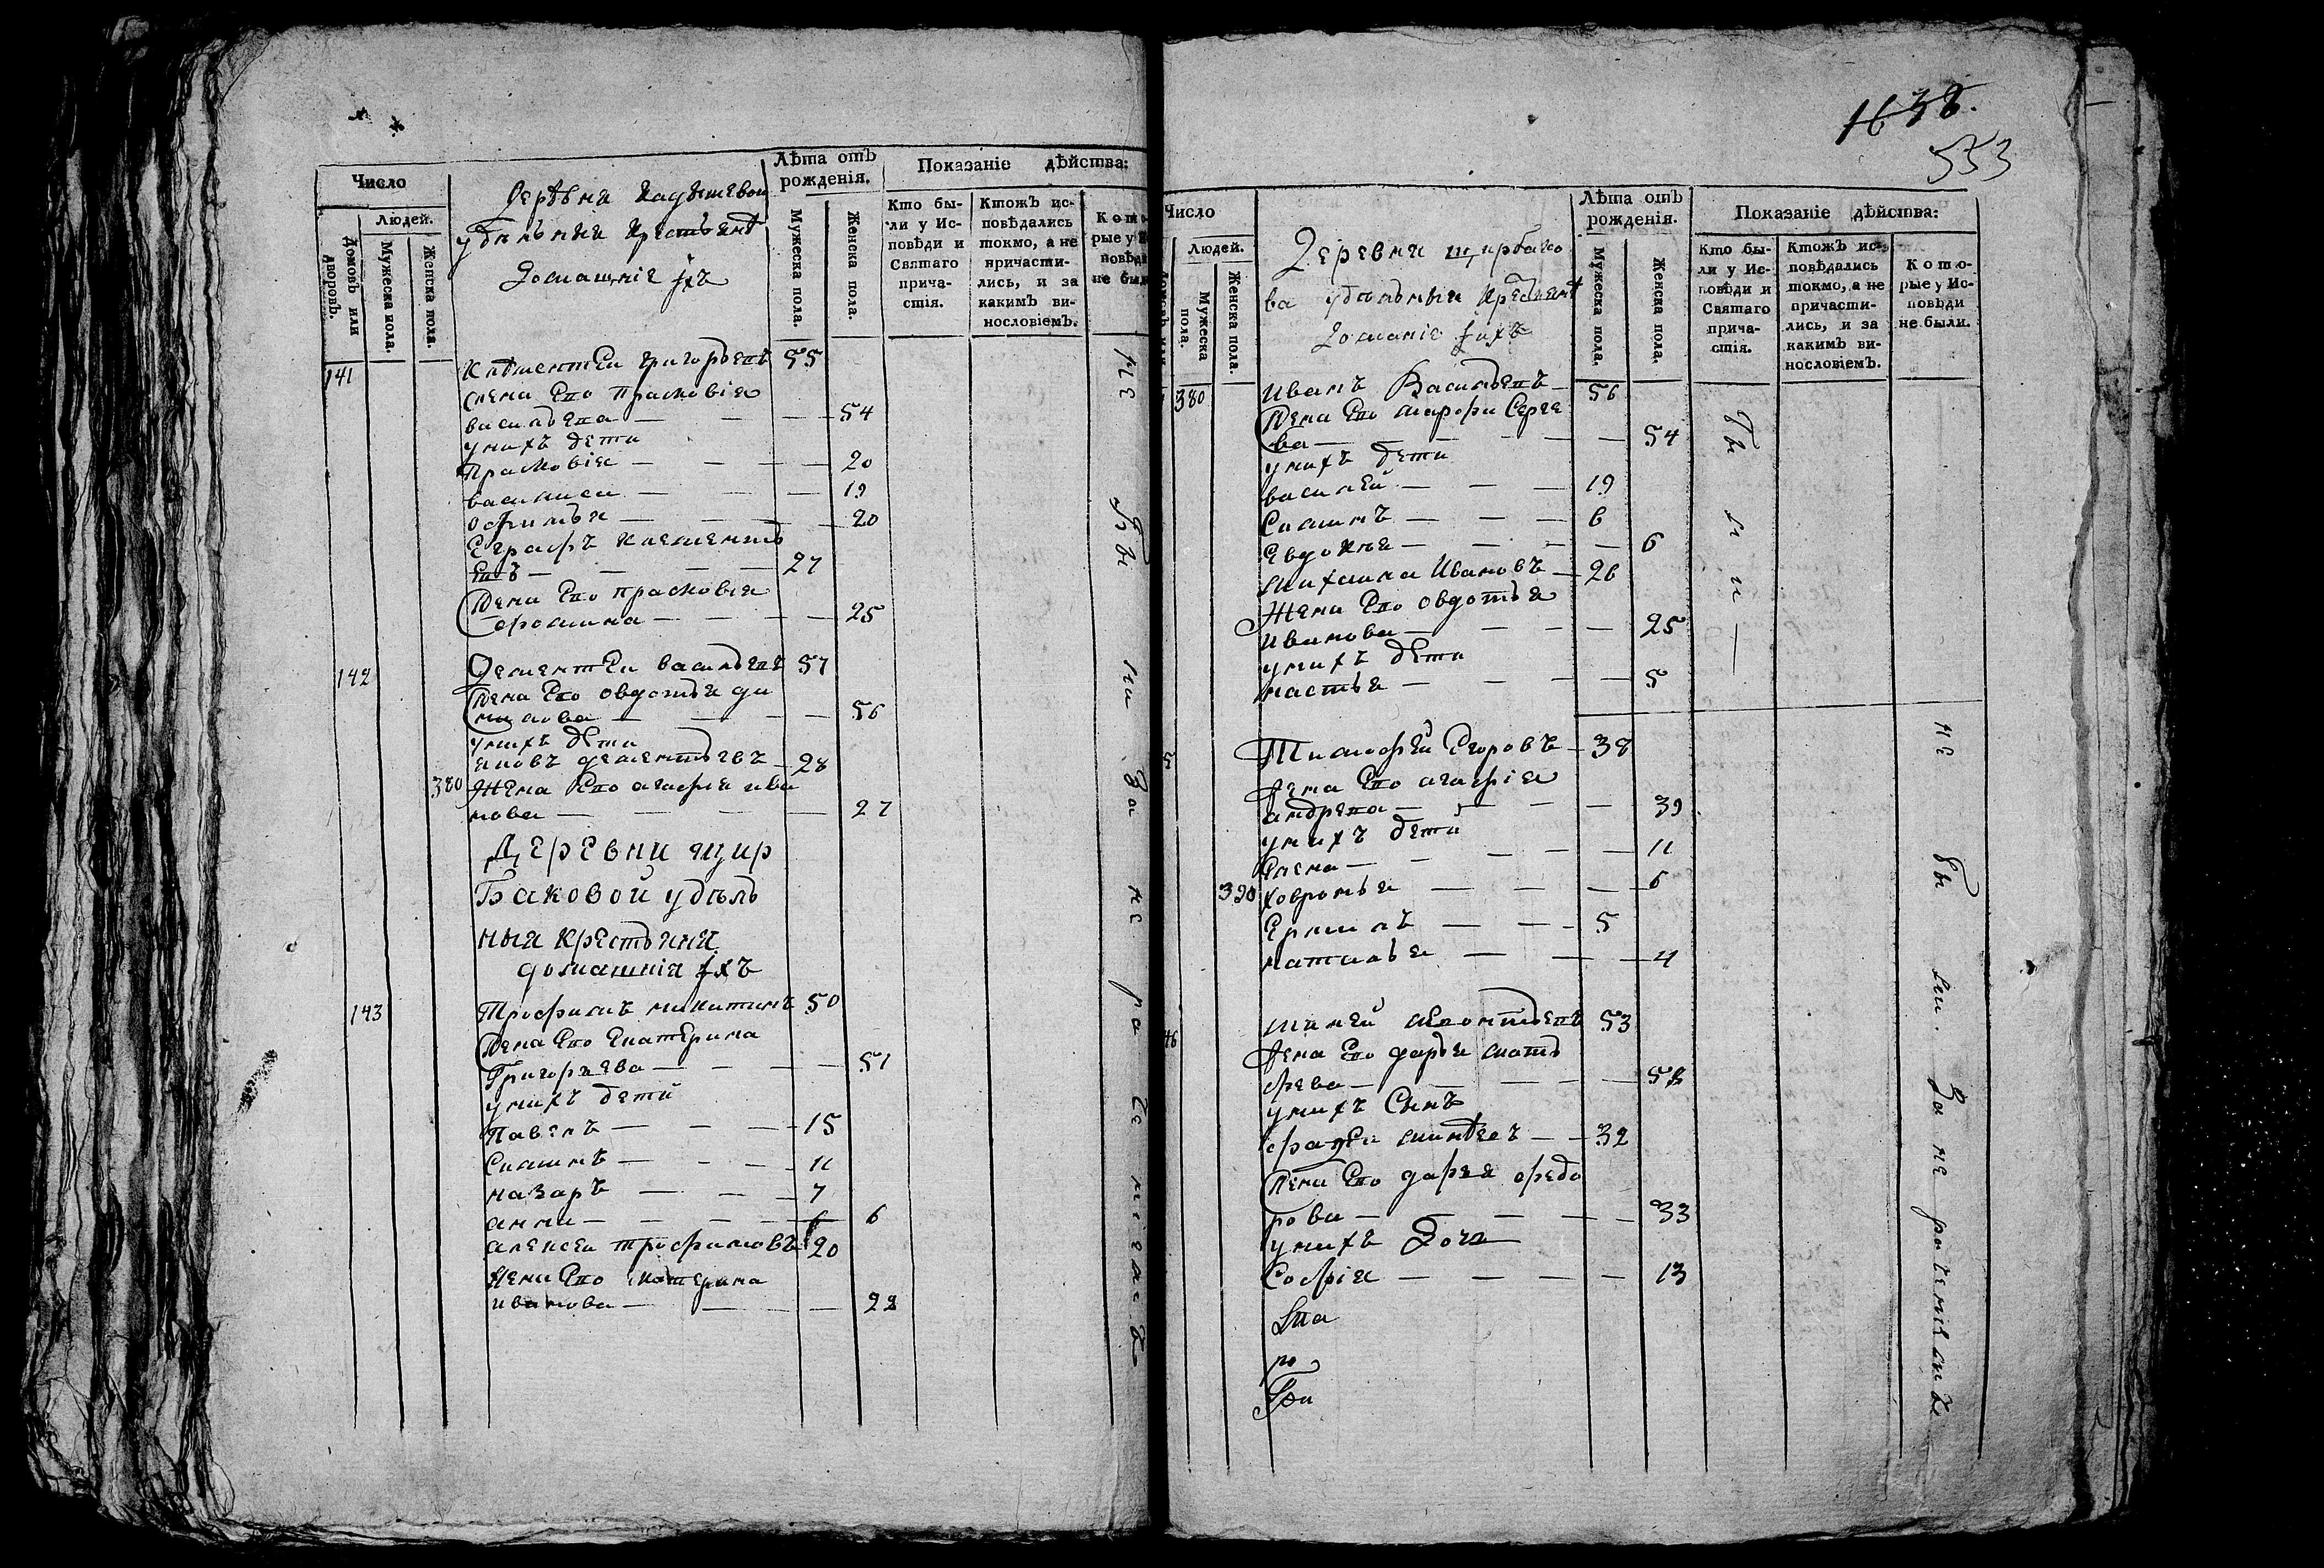 Число
Людей.
Домовъ или дворовъ.
Мужеска пола.
Женска пола.
удѣльныя крестьяня
домашнiе ихъ
Лѣта отъ рожденія.
Мужеска пола.
Женска пола.
Показаніе дѣйства:
Кто бы-
ли у Ис-
повѣди и
Святаго
прича-
стія.
Ктожъ ис-
повѣдались
токмо, а не
причасти-
лись, и за
какимъ ви-
нословіемъ.
141
Григорьевъ 55
жена Его Прасковiя
васильева — 54
унихъ дети
Прасковiя — 20
василиса — 19
офимья — 20
27
жена Его прасковiя
25
142 Дементеи васильевъ 57
жена Его овдотья да
нилова — 56
унихъ дети
яковъ дементьевъ — 28
380 Жена Его агафiя ива
нова — 27
Деревни щир
Баковой удѣль
ныя крестьяня
домашнiя ихъ
143 Трофимъ никитинъ 50
жена Его Екатерина
Григорьева — 51
унихъ дети
Павелъ — 15
11
назаръ — 7
анна — 6
алексеи трофимовъ 20
жена Его катерина
иванова — 22
не бы ли за не ра че ние мъ
1638.
553
Число
Людей.
Мужеска пола.
Женска пола.
Деревни щирбако
ва удѣльныи крестьяня
домание ихъ
Лѣта отъ рожденія.
Мужеска пола.
Женска пола.
Показаніе дѣйства:
Кто бы-
ли у Ис-
повѣди и
Святаго
прича-
стія.
Ктожъ ис-
повѣдались
токмо, а не
причасти-
лись, и за
какимъ ви-
нословіемъ.
Кото-
рые у Ис-
повѣди
не были.
380 Иванъ Васильевъ — 56
жена Его марфа Серге
ва — 54
унихъ дети
василей — 19
6
Евдокия — 6
михаила Ивановъ — 26
Жена Его овдотья
Иванова — 25
унихъ дети
настья — 5
бы ли —
Тимофей Егоровъ — 38
жена Его агафiя
андрева — 39
унихъ дети
Елена — 11
390 ховронья — 6
Ермилъ — 5
наталья — 4
53
жена Его дарья мать
фева — 58
унихъ Сынъ
32
жена Его дарья федо
рова — 33
унихъ Дочь
Софiя — 13
не бы ли. за не ра че ниемъ